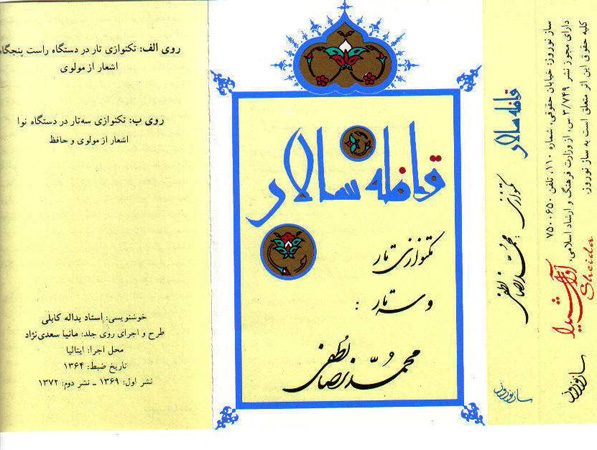 روی الف: تکنوازی تار در دستگاه راست پنجگاه
اشعار از مولوی
روی ب: تکنوازی سه‌تار در دستگاه نوا
اشعار از مولوی و حافظ
خوشنویسی: استاد یداله کابلی
طرح و اجرای روی جلد: مانیا سعدی‌نژاد
محل اجرا: ایتالیا
تاریخ ضبط: ۱۳۶۴
نشر اول: ۱۳۶۹ ـ نشر دوم: ۱۳۷۲
قافله سالار
تکنوازی تار
و سه تار:
محمدرضا لطفی
قافله سالار
تکنوازی: محمدرضا لطفی
ساز نوروز
ساز نوروز: خیابان حقوقی، شماره ۱۱۰، تلفن ۷۵۰۰۶۵۰
دارای مجوز نشر ۲/۷۴۹ س، از وزارت فرهنگ و ارشاد اسلامی.
کلیه حقوق این اثر متعلق است به ساز نوروز.
آوای شیدا
Sheida
ساز نوروز